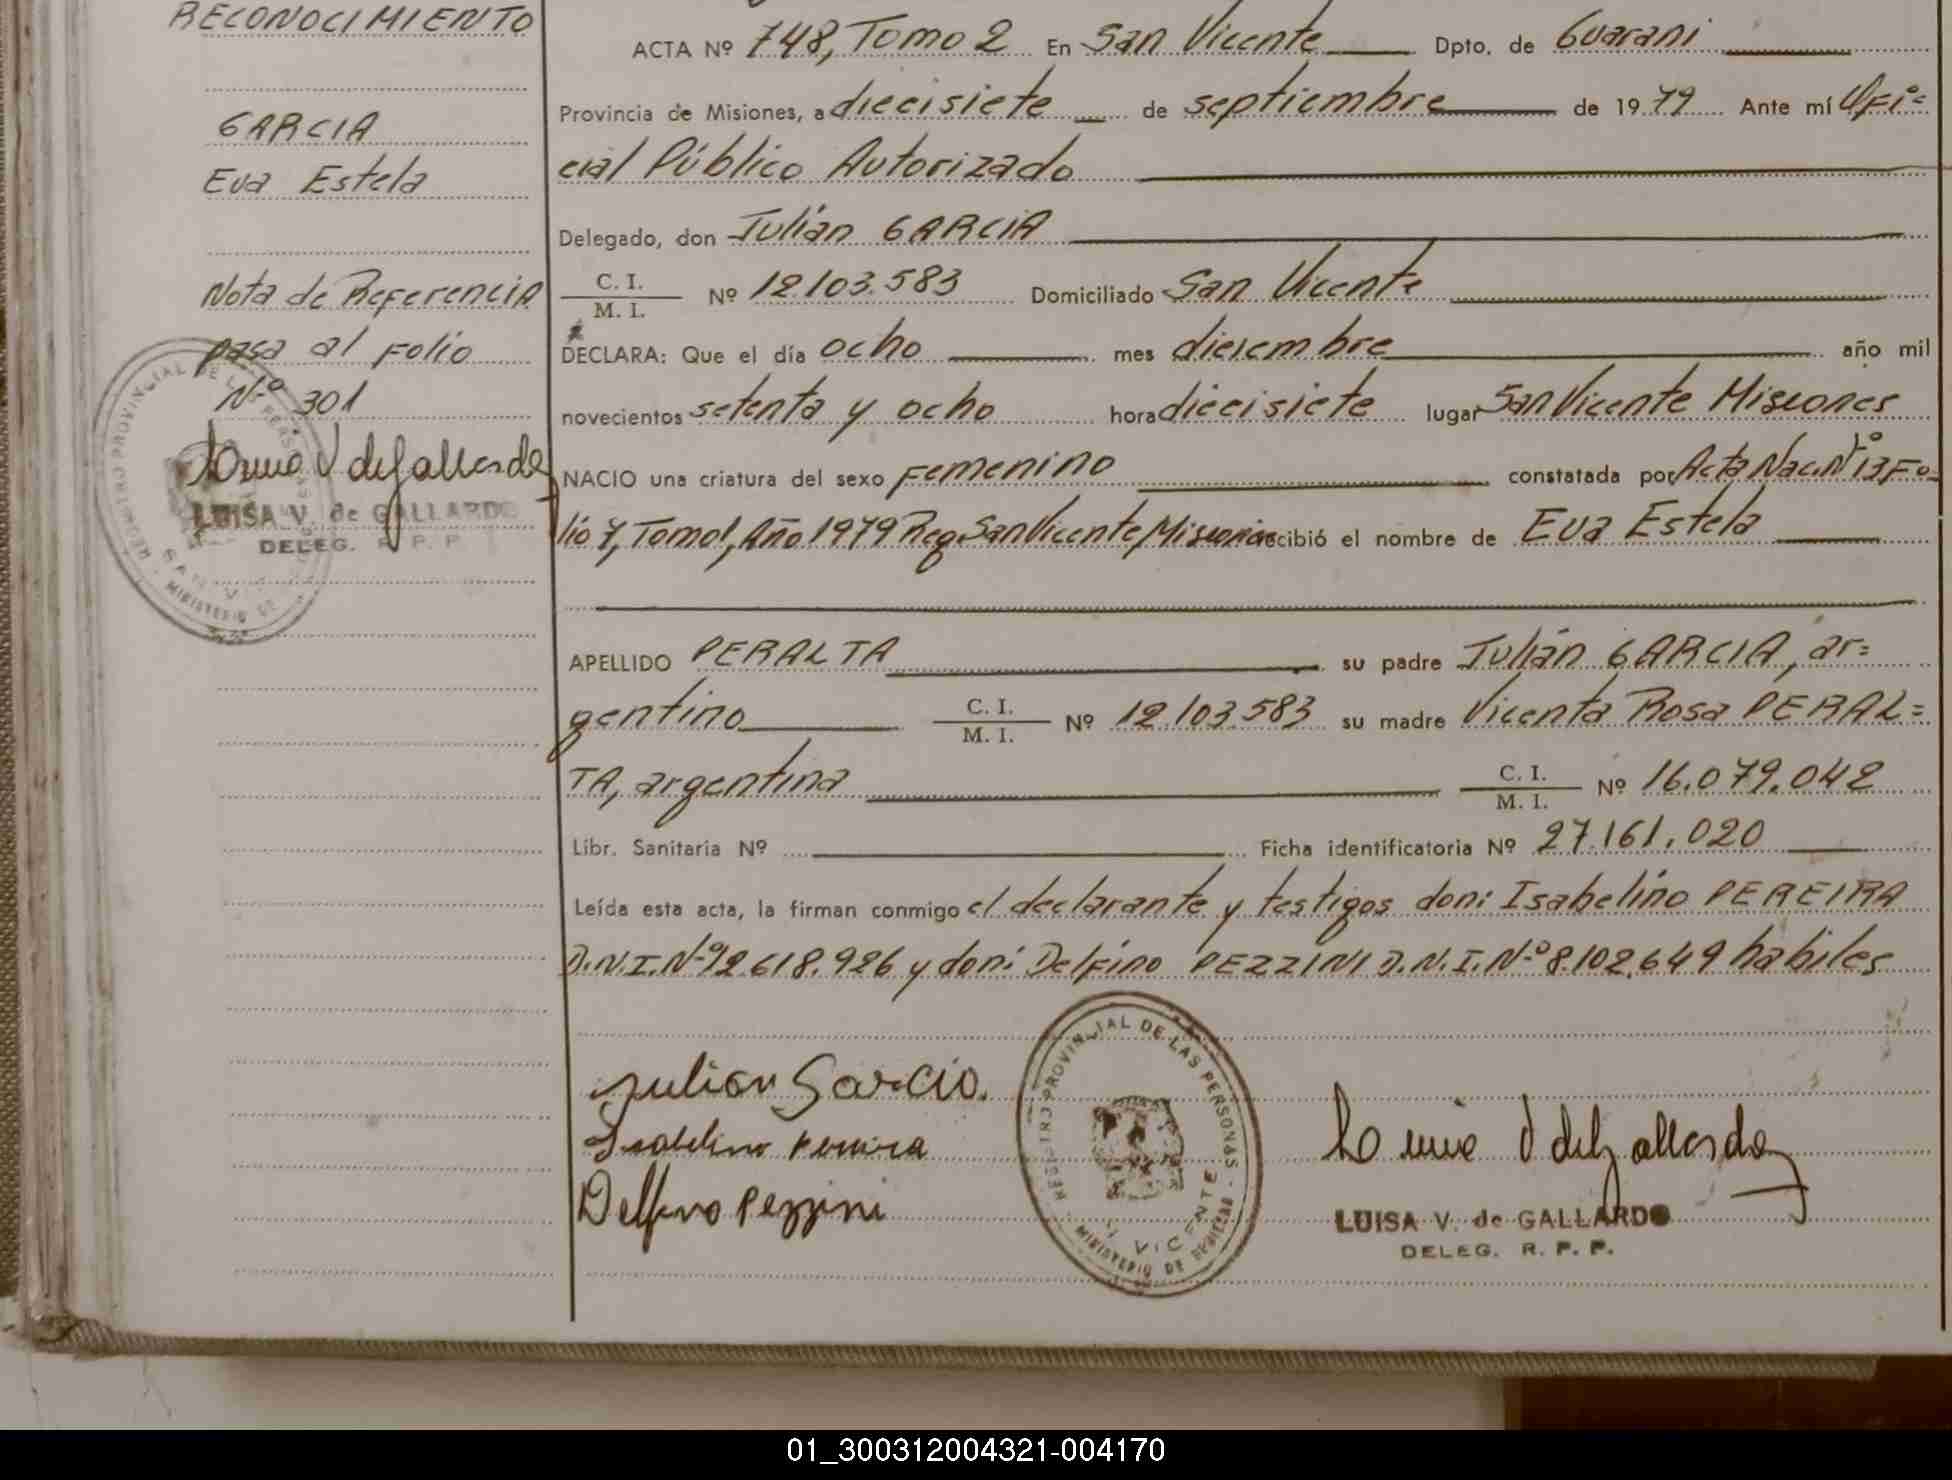 RECONOCIMIENTO
GARCIA
Eva Estela
Nota de Referencia
pasa al Folio
Nº 301
LUISA V. de GALLARDO
DELEG. R. P. P.
ACTA Nº 748, Tomo 2 En San Vicente Dpto. de Guarani
Provincia de Misiones, a diecisiete de septiembre de 1979 Ante mí Ofi=
cial Público Autorizado
Delegado, don Julián GARCIA
C. I.
M. I. Nº 12.103.583 Domiciliado San Vicente
DECLARA: Que el día ocho mes diciembre año mil
novecientos setenta y ocho hora diecisiete lugar San Vicente Misiones
NACIO una criatura del sexo femenino constatada por Acta Nac. Nº 13, Fo=
lio 7, Tomo 1, Año 1979 Reg San Vicente, Misiones recibió el nombre de Eva Estela
APELLIDO PERALTA su padre Julián GARCIA, ar=
gentino C. I.
M. I. Nº 12.103.583 su madre Vicenta Rosa PERAL=
TA, argentina C. I.
M. I. Nº 16.079.042
Libr. Sanitaria Nº Ficha identificatoria Nº 27.161.020
Leída esta acta, la firman conmigo el declarante y testigos don: Isabelino PEREIRA
D.N.I. Nº 12.618.926 y don: Delfino PEZZINI D.N.I. Nº 8.102.649 habiles
Julian Garcia.
Isabelino Pereira
Delfino Pezzini
REGISTRO PROVINCIAL DE LAS PERSONAS
VICENTE
MINISTERIO DE
LUISA V. de GALLARDO
DELEG. R. P. P.
01_300312004321-004170